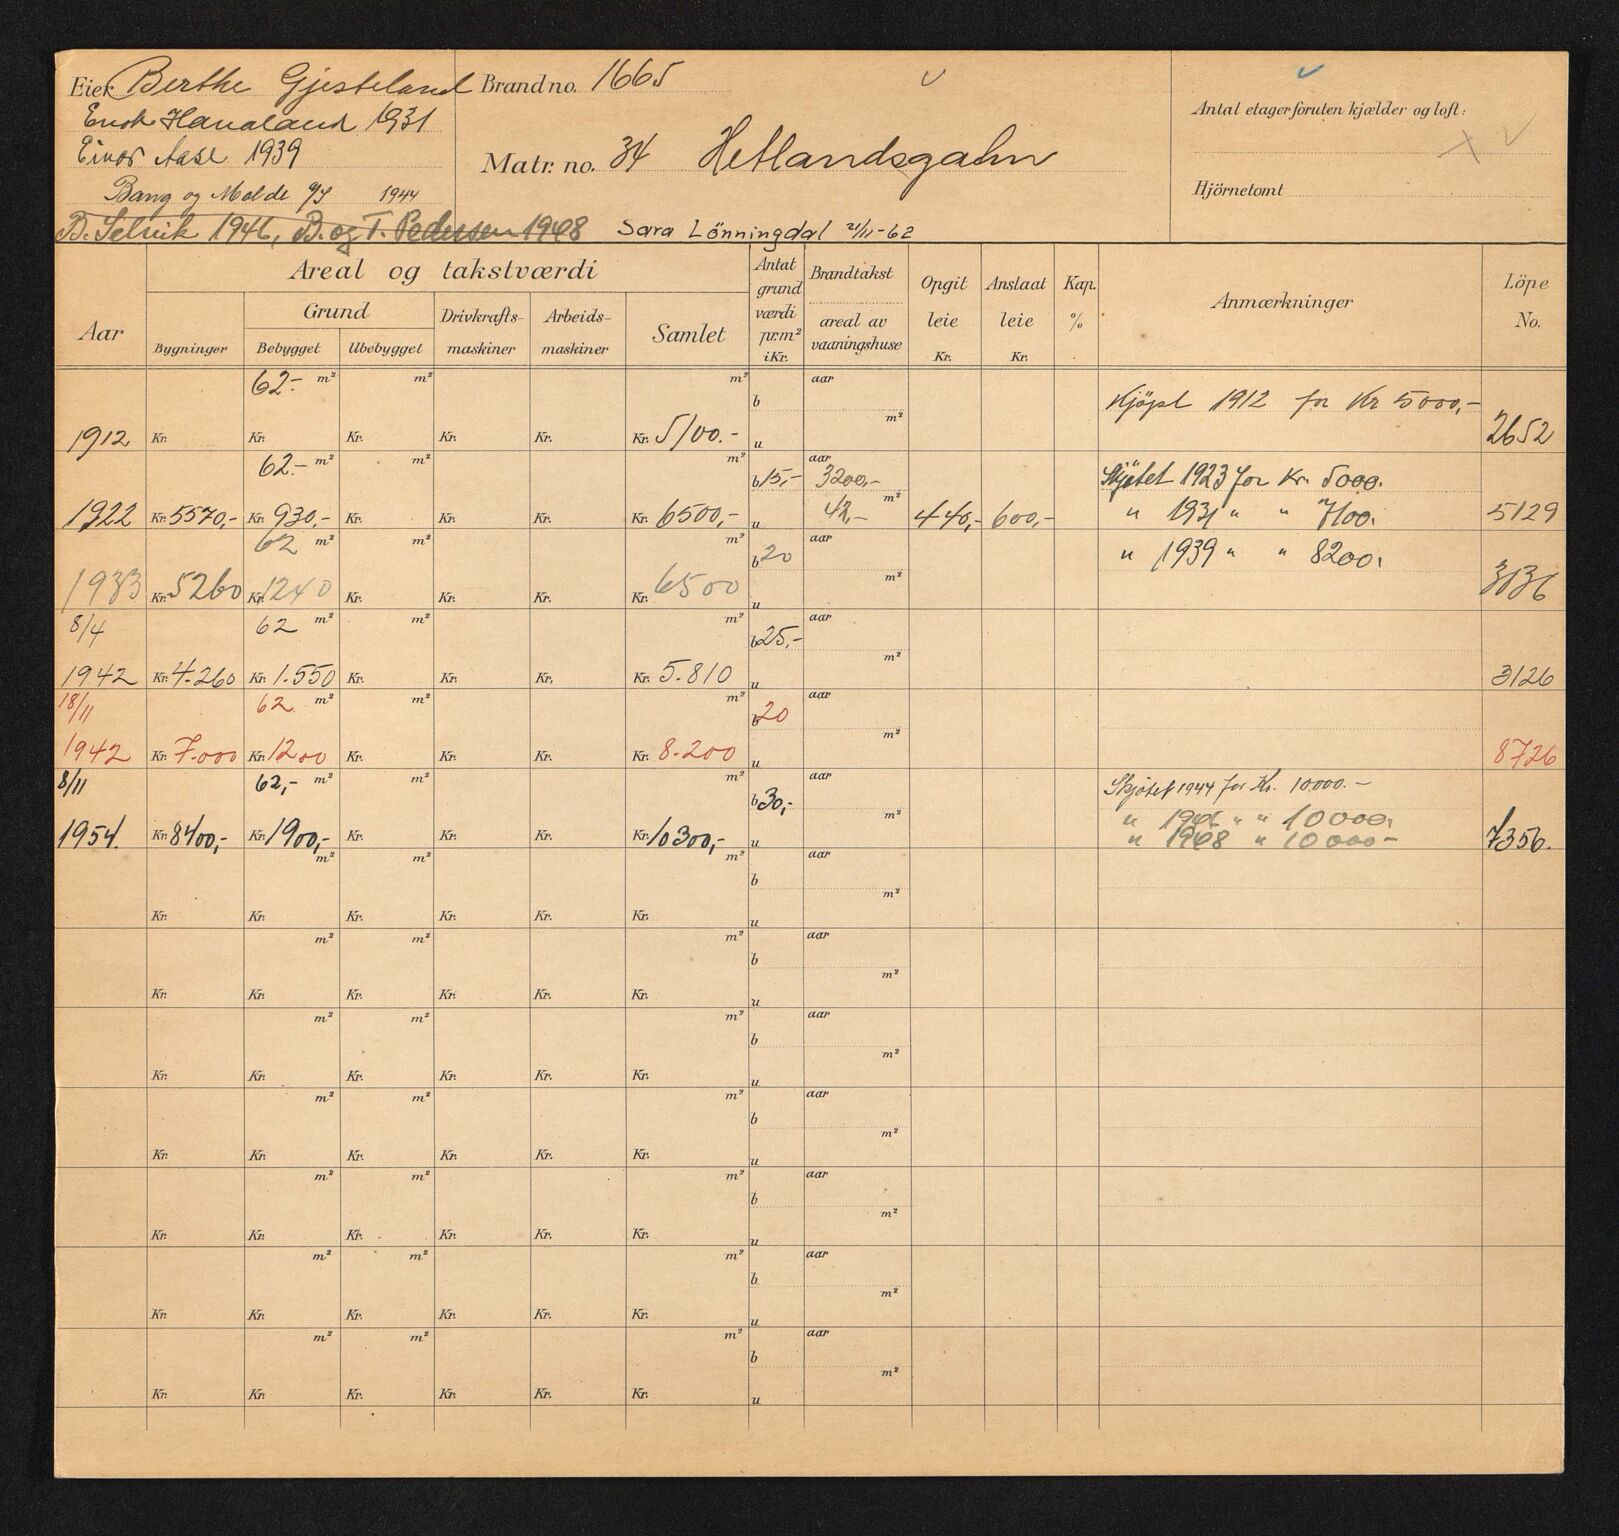 Eier Berthe Gjesteland
Enok Haualand 1931
Einar Aase 1939
Bang og Molde a/s 1944
B. Selvik 1946, B. og T. Pedersen 1948 Sara Lönningdal 21/11-62
Brand no. 1665
Matr. no. 34 Hetlandsgatn
Antal etager foruten kjælder og loft:
Hjörnetomt
Aar
Areal og takstværdi
Grund
Bygninger Bebygget Ubebygget
Drivkrafts-maskiner
Arbeids-maskiner
Samlet
Antat grund værdi pr.m² i Kr.
Brandtakst
areal av vaaningshuse
Opgit leie Kr.
Anslaat leie Kr.
Kap. %
Anmærkninger
Löpe No.
62.- m² m² m² aar
b m² Kjöpt 1912 for Kr 5000,-
1912 Kr. Kr. Kr. Kr. Kr. Kr. 5100.- u 2652
62.- m² m² m² aar
b 15,- 3200,- m² Skjötet 1923 for Kr. 5000.
1922 Kr. 5570,- Kr. 930,- Kr. Kr. Kr. Kr. 6500,- u 42,- 440,- 600,- " 1931 " " 7100. 5129
62 m² m² m² aar
b 20 m² " 1939 " " 8200.
1933 Kr. 5260 Kr. 1240 Kr. Kr. Kr. Kr. 6500 u 3136
8/4 62 m² m² m² aar
b 25,- m²
1942 Kr. 4.260 Kr. 1.550 Kr. Kr. Kr. Kr. 5.810 u 3126
18/11 62 m² m² m² aar
b 20 m²
1942 Kr. 7.000 Kr. 1200 Kr. Kr. Kr. Kr. 8.200 u 8726
8/11 62,- m² m² m² aar Skjötet 1944 for Kr. 10000.-
b 30,- m² " 1946 " " 10000.
1954. Kr. 8400,- Kr. 1900,- Kr. Kr. Kr. Kr. 10300,- u " 1948 " 10000- 7356.
m² m² m² aar
b m²
Kr. Kr. Kr. Kr. Kr. Kr. u
m² m² m² aar
b m²
Kr. Kr. Kr. Kr. Kr. Kr. u
m² m² m² aar
b m²
Kr. Kr. Kr. Kr. Kr. Kr. u
m² m² m² aar
b m²
Kr. Kr. Kr. Kr. Kr. Kr. u
m² m² m² aar
b m²
Kr. Kr. Kr. Kr. Kr. Kr. u
m² m² m² aar
b m²
Kr. Kr. Kr. Kr. Kr. Kr. u
m² m² m² aar
b m²
Kr. Kr. Kr. Kr. Kr. Kr. u